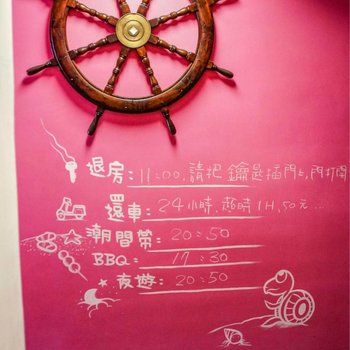 退房：11:00.請把鑰匙插門上,門打開
還車：24小時.超時1H,50元...
潮間帶：20:50
BBQ：17:30
夜遊：20:50